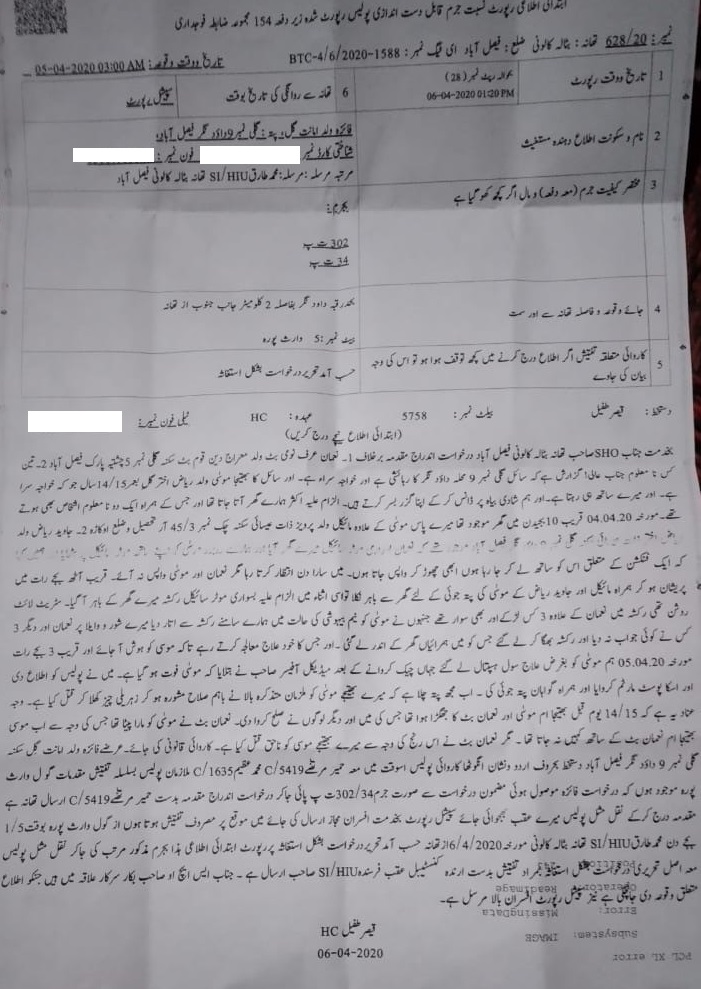 ابتدائی اطلاعی رپورٹ نسبت جرم قابل دست اندازی پولیس رپورٹ شدہ زیر دفعہ 154 مجموعہ ضابطہ فوجداری
نمبر: 628/20 تھانہ: بٹالہ کالونی ضلع: فیصل آباد ای ٹیگ نمبر: BTC-4/6/2020-1588 تاریخ و وقت وقوعہ: 05-04-2020 03:00 AM
1 تاریخ و وقت رپورٹ بحوالہ رپٹ نمبر (28) 06-04-2020 01:20 PM 6 تھانہ سے روانگی کی تاریخ و وقت سپیشل رپورٹ
2 نام و سکونت اطلاع دہندہ مستغیث فائزہ ولد امانت گل، پتہ: گلی نمبر 9 داؤد نگر فیصل آباد،
شناختی کارڈ نمبر فون نمبر:
مرتبہ مرسلہ: مرسلہ: محمد طارق SI/HIU تھانہ بٹالہ کالونی فیصل آباد
3 مختصر کیفیت جرم (معہ دفعہ) و مال اگر کچھ کھو گیا ہے
بجرم:
302 ت پ
34 ت پ
4 جائے وقوعہ و فاصلہ تھانہ سے اور سمت بحدرقبہ داود نگر بفاصلہ 2 کلومیٹر جانب جنوب از تھانہ
بیٹ نمبر: 5 وارث پورہ
5 کاروائی متعلقہ تفتیش اگر اطلاع درج کرنے میں کچھ توقف ہوا ہو تو اس کی وجہ بیان کی جاوے حسب آمد تحریر درخواست بشکل استغاثہ
دستخط: قیصر طفیل بیلٹ نمبر: 5758 عہدہ: HC ٹیلی فون نمبر:
(ابتدائی اطلاع نیچے درج کریں)
بخدمت جناب SHO صاحب تھانہ بٹالہ کالونی فیصل آباد درخواست اندراج مقدمہ برخلاف 1۔ نعمان عرف نومی بٹ ولد معراج دین قوم بٹ سکنہ گلی نمبر 5 چشتیہ پارک فیصل آباد 2۔ تین
کس نا معلوم جناب عالی! گزارش ہے کہ سائل گلی نمبر 9 محلہ داؤد نگر کا رہائشی ہے اور خواجہ سراء ہے۔ اور سائل کا بھتیجا موسیٰ ولد ریاض اختر گل بعمر 14/15 سال جو کہ خواجہ سرا
ہے۔ اور میرے ساتھ ہی رہتا ہے۔ اور ہم شادی بیاہ پر ڈانس کر کے اپنا گزر بسر کرتے ہیں۔ الزام علیہ اکثر ہمارے گھر آتا جاتا تھا اور جس کے ہمراہ ایک دو نا معلوم اشخاص بھی ہوتے
تھے۔ مورخہ 04.04.20 قریب 10 بجے دن میں گھر موجود تھا میرے پاس موسیٰ کے علاوہ مائیکل ولد پرویز ذات عیسائی سکنہ چک نمبر 45/3 آر تحصیل و ضلع اوکاڑہ 2۔ جاوید ریاض ولد
کہ ایک فنکشن کے متعلق اس کو ساتھ لے کر جا رہا ہوں ابھی چھوڑ کر واپس جاتا ہوں۔ میں سارا دن انتظار کرتا رہا مگر نعمان اور موسیٰ واپس نہ آئے۔ قریب آٹھ بجے رات میں
پریشان ہو کر ہمراہ مائیکل اور جاوید ریاض کے موسیٰ کی پتہ جوئی کے لئے گھر سے باہر نکلا تو اسی اثناہ میں الزام علیہ بسواری موٹر سائیکل رکشہ میرے گھر کے باہر آ گیا۔ سٹریٹ لائٹ
روشن تھی رکشہ میں نعمان کے علاوہ 3 کس لڑکے اور بھی سوار تھے جنہوں نے موسیٰ کو نیم بیہوشی کی حالت میں ہمارے سامنے رکشہ سے اتار دیا میرے شور و اویلا پر نعمان اور دیگر 3
کس نے کوئی جواب نہ دیا اور رکشہ بھگا کر لے گئے جس کو میں ہمراہیاں گھر کے اندر لے گئی۔ اور جس کا خود علاج معالجہ کرتے رہے تاکہ موسیٰ کو ہوش آ جائے اور قریب 3 بجے رات
مورخہ 05.04.20 ہم موسیٰ کو بغرض علاج سول ہسپتال لے گئے جہاں چیک کروانے کے بعد میڈیکل آفیسر صاحب نے بتلایا کہ موسیٰ فوت ہو گیا ہے۔ میں نے پولیس کو اطلاع دی
اور اسکا پوسٹ مارٹم کروایا اور ہمراہ گواہان پتہ جوئی کی۔ اب مجھے پتہ چلا ہے کہ میرے بھتیجے موسیٰ کو ملزمان متذکرہ بالا نے باہم صلاح مشورہ ہو کر زہریلی چیز کھلا کر قتل کیا ہے۔ وجہ
عناد یہ ہے کہ 14/15 یوم قبل بھتیجا ام موسیٰ اور نعمان بٹ کا جھگڑا ہوا تھا جس کی میں اور دیگر لوگوں نے صلح کروا دی۔ نعمان بٹ نے موسیٰ کو مارا پیٹا تھا جس کی وجہ سے اب موسیٰ
بھتیجا ام نعمان بٹ کے ساتھ کہیں نہ جاتا تھا۔ مگر نعمان بٹ نے اس رنج کی وجہ سے میرے بھتیجے موسیٰ کو ناحق قتل کیا ہے۔ کاروائی قانونی کی جائے۔ عرضے فائزہ ولد امانت گل سکنہ
گلی نمبر 9 داؤد نگر فیصل آباد دستخط بحروف اردو و نشان انگوٹھا کاروائی پولیس اسوقت میں معہ حمیر مرتضے C/5419 محمد عظیم C/1635 ملازمان پولیس بسلسلہ تفتیش مقدمات گول وارث
پورہ موجود ہوں کہ درخواست فائزہ موصول ہوئی مضمون درخواست سے صورت جرم 302/34 ت پ پائی جا کر درخواست اندراج مقدمہ بدست حمیر مرتضے C/5419 ارسال تھانہ ہے
مقدمہ درج کر کے نقل مثل پولیس میرے عقب بھجوائی جائے سپیشل رپورٹ بخدمت افسران مجاز ارسال کی جائے میں موقع پر مصروف تفتیش ہوتا ہوں از گول وارث پورہ بوقت 1/5
بجے دن محمد طارق SI/HIU تھانہ بٹالہ کالونی مورخہ 6/4/2020 از تھانہ حسب آمد تحریر درخواست بشکل استغاثہ پر رپورٹ ابتدائی اطلاعی ہذا بجرم مذکور مرتب کی جا کر نقل مثل پولیس
معہ اصل تحریری درخواست بشکل استغاثہ بمراد تفتیش بدست ارندہ کنسٹیبل عقب فرسندہ SI/HIU صاحب ارسال ہے۔ جناب ایس ایچ او صاحب بکار سرکار علاقہ میں ہیں جنکو اطلاع
متعلق وقوعہ دی جا چکی ہے نیز سپیشل رپورٹ افسران بالا مرسل ہے۔
قیصر طفیل HC
06-04-2020
PCL XL error
Subsystem: IMAGE
Error: MissingData
Operator: ReadImage
Position: